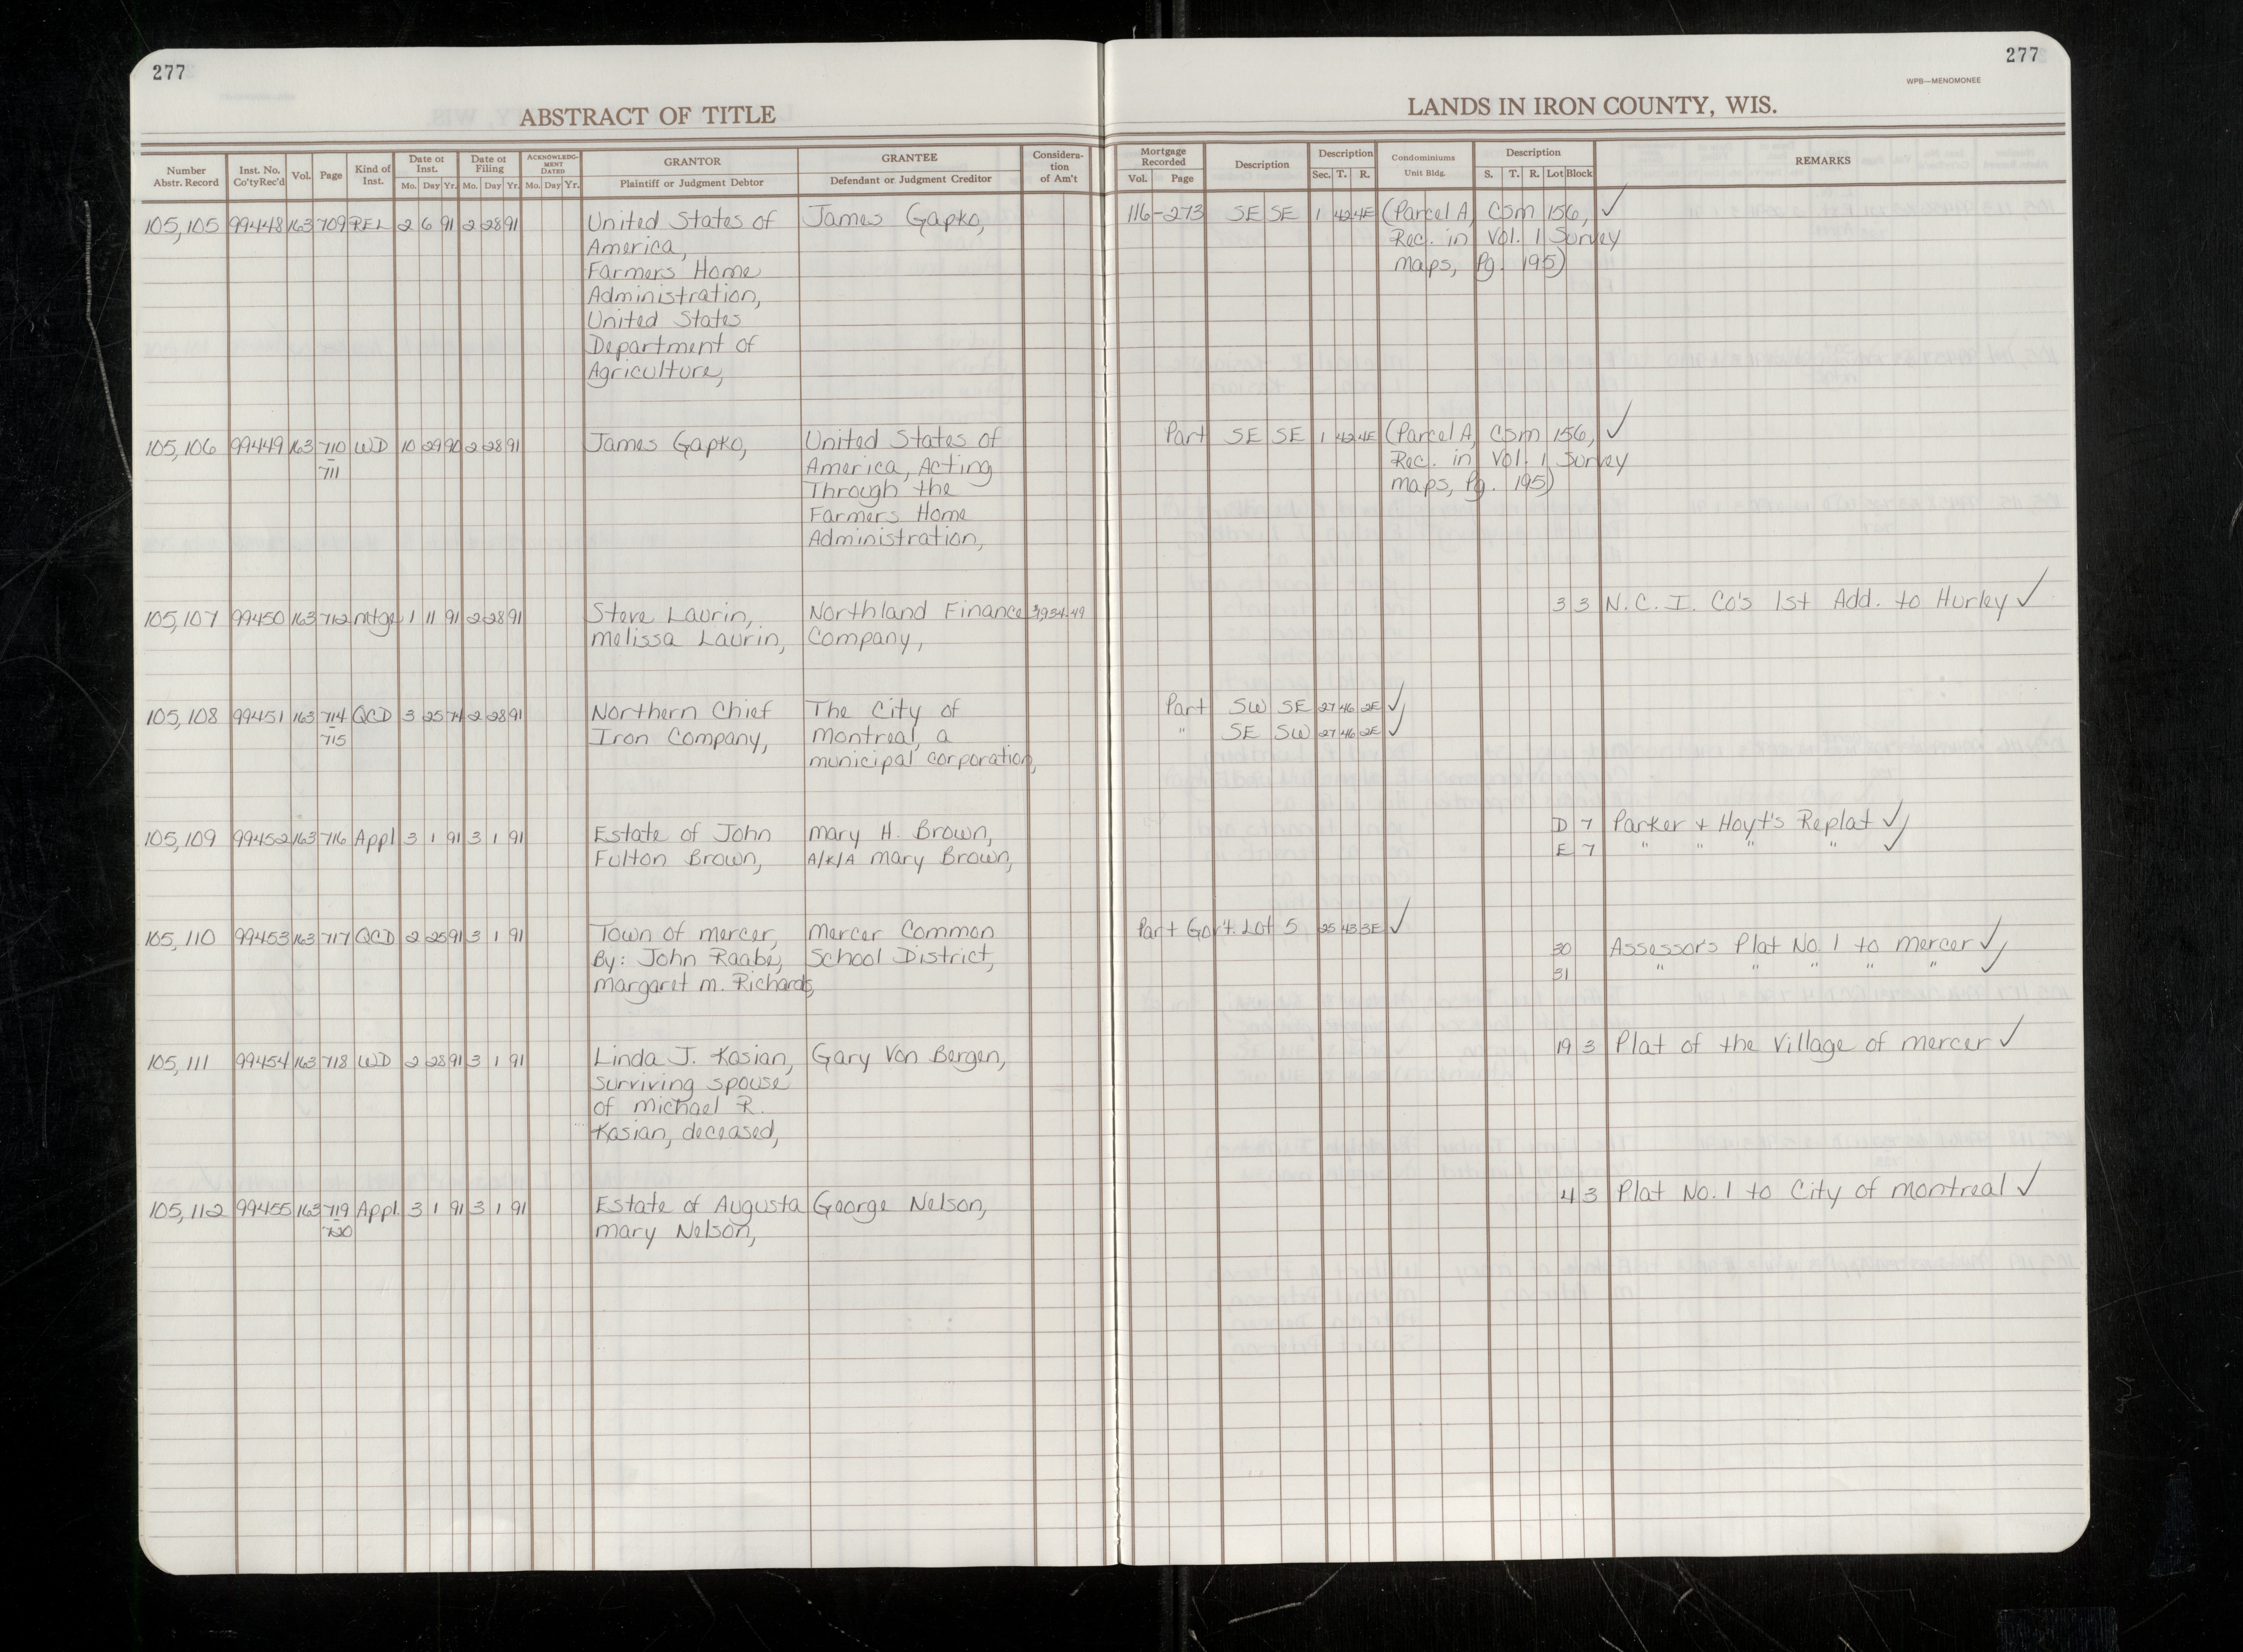 277
277
WPB—MENOMONEE
ABSTRACT OF TITLE
LANDS IN IRON COUNTY, WIS.
Number Abstr. Record
Inst. No. Co'tyRec'd
Vol.
Page
Kind of Inst.
Date of Inst.
Mo. Day Yr.
Date of Filing
Mo. Day Yr.
ACKNOWLEDGMENT DATED
Mo. Day Yr.
GRANTOR
Plaintiff or Judgment Debtor
GRANTEE
Defendant or Judgment Creditor
Consideration of Am't
Mortgage Recorded
Vol. Page
Description
Description
Sec. T. R.
Condominiums
Unit Bldg.
Description
S. T. R. Lot Block
REMARKS
105,105 99448 163 709 REL 2 6 91 2 28 91 United States of James Gapko, 116-273 SE SE 1 42 4E (Parcel A, CSM 156, ✓
America, Rec. in Vol. 1 Survey
Farmers Home Maps, Pg. 195)
Administration,
United States
Department of
Agriculture,
105,106 99449 163 710 WD 10 29 90 2 28 91 James Gapko, United States of Part SE SE 1 42 4E (Parcel A, CSM 156, ✓
711 America, Acting Rec. in Vol. 1 Survey
Through the Maps, Pg. 195)
Farmers Home
Administration,
105,107 99450 163 712 Mtge 1 11 91 2 28 91 Steve Laurin, Northland Finance 3 3 N.C.I. Co's 1st Add. to Hurley ✓
Melissa Laurin, Company,
105,108 99451 163 714 QCD 3 25 74 2 28 91 Northern Chief The City of Part SW SE 27 46 2E ✓
715 Iron Company, Montreal, a " SE SW 27 46 2E ✓
municipal corporation,
105,109 99452 163 716 Appl 3 1 91 3 1 91 Estate of John Mary H. Brown, D 7 Parker + Hoyt's Replat ✓
Fulton Brown, A/K/A Mary Brown, E 7 " " " " ✓
105,110 99453 163 717 QCD 2 25 91 3 1 91 Town of Mercer, Mercer Common Part Gov't. Lot 5 25 43 3E ✓
By: John Raabe, School District, 30 Assessor's Plat No. 1 to Mercer ✓
Margaret M. Richards, 31 " " " " " ✓
105,111 99454 163 718 WD 2 28 91 3 1 91 Linda J. Kasian, Gary Von Bergen, 19 3 Plat of the Village of Mercer ✓
surviving spouse
of Michael R.
Kasian, deceased,
105,112 99455 163 719 Appl. 3 1 91 3 1 91 Estate of Augusta George Nelson, 4 3 Plat No. 1 to City of Montreal ✓
720 Mary Nelson,